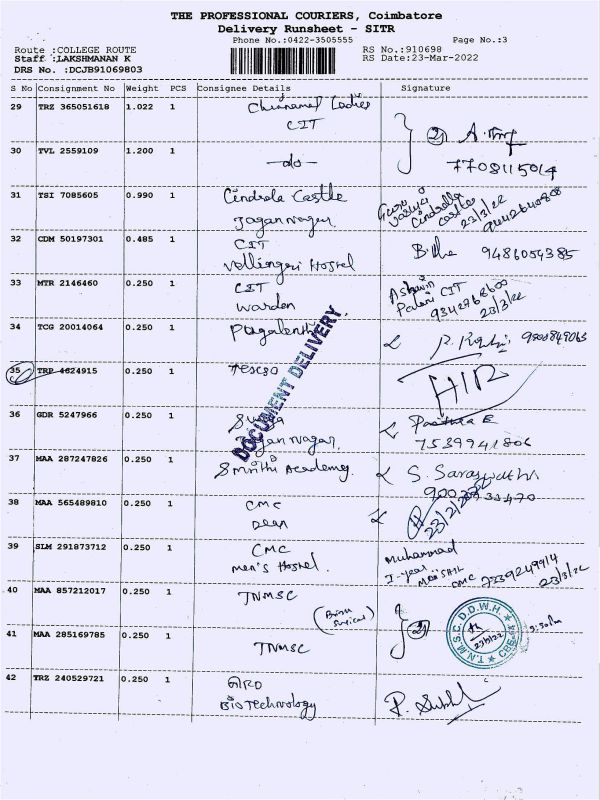 THE PROFESSIONAL COURIERS, Coimbatore
Delivery Runsheet - SITR
Phone No.:0422-3505555 Page No.:3
Route :COLLEGE ROUTE RS No.:910698
Staff :LAKSHMANAN K RS Date:23-Mar-2022
DRS No. :DCJB91069803
S No Consignment No Weight PCS Consignee Details Signature
29 TRZ 365051618 1.022 1 Ladies
CIT
30 TVL 2559109 1.200 1 -do-
7708115014
31 TSI 7085605 0.990 1 Cindrola Castle
Jagan Nagar
Cindrella
castle
23/3/22
32 CDM 50197301 0.485 1 CIT 9486054385
Hostel
33 MTR 2146460 0.250 1 CIT
Warden
Ashwin
CIT
9342768600
23/3/22
34 TCG 20014064 0.250 1
35 TRP 4624915 0.250 1
DOCUMENT DELIVERY
36 GDR 5247966 0.250 1
Nagar
7539941806
37 MAA 287247826 0.250 1 Smrithi Academy S.
38 MAA 565489810 0.250 1 CMC
Dean
39 SLM 291873712 0.250 1 CMC
men's Hostel.
Muhammad
I-year
CMC
23/3/22
40 MAA 857212017 0.250 1 TNMSC
41 MAA 285169785 0.250 1 TNMSC
T.N.M.S.C. D.D.W.H. CBE
42 TRZ 240529721 0.250 1 GRD
BioTechnology